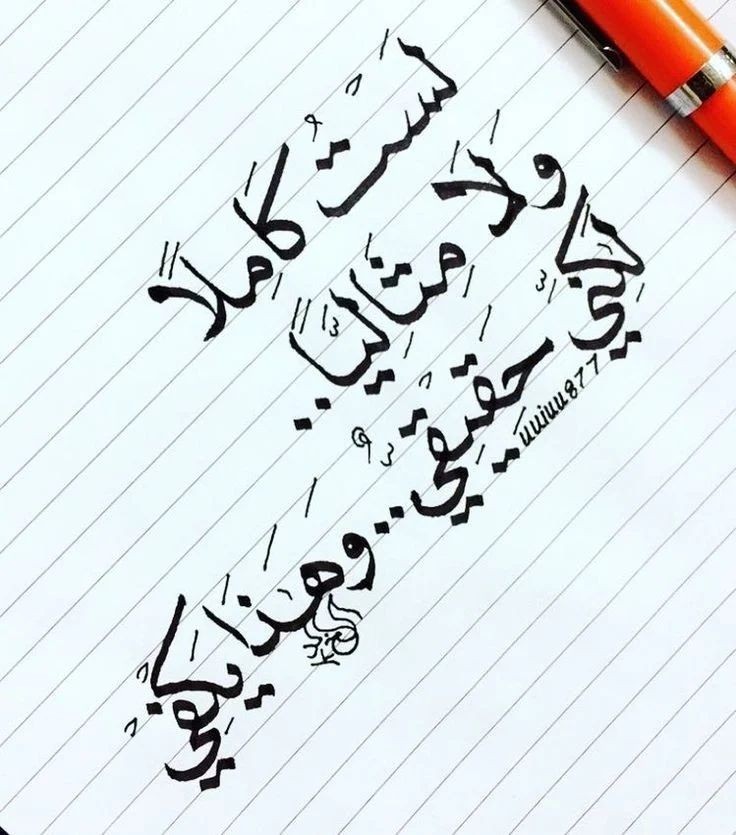 لَسْتُ كَامِلاً
وَلَا مِثَالِيًّا..
لَكِنِّي
حَقِيقِيٌّ..
وَهَذَا يَكْفِي
uuiuu877